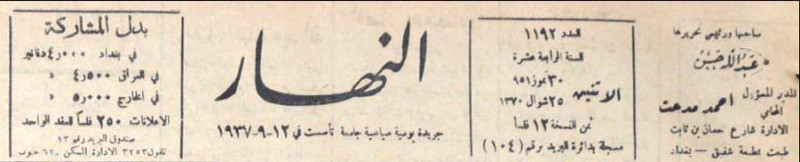 صاحبها ورئيس تحريرها
عبدالله حسن
المدير المسؤول احمد مدحت
المحامي
الادارة شارع حسان بن ثابت
طبعت بمطبعة شفيق - بغداد
العدد ١١٩٢
السنة الرابعة عشرة
الاثنين
٣٠ تموز ٩٥١
٢٥ شوال ١٣٧٠
ثمن النسخة ١٢ فلساً
مسجلة بدائرة البريد برقم (١٠٤)
النهار
جريدة يومية سياسية جامعة تأسست في ١٢-٩-١٩٣٧
بدل المشاركة
في بغداد ٤٫٠٠٠ دنانير
في العراق ٤٫٥٠٠ »
في الخارج ٥٫٠٠٠ »
الاعلانات ٢٥٠ فلساً للعقد الواحد
صندوق البريد رقم ٤٣
تلفون ٣٢٥٣ الادارة السكن